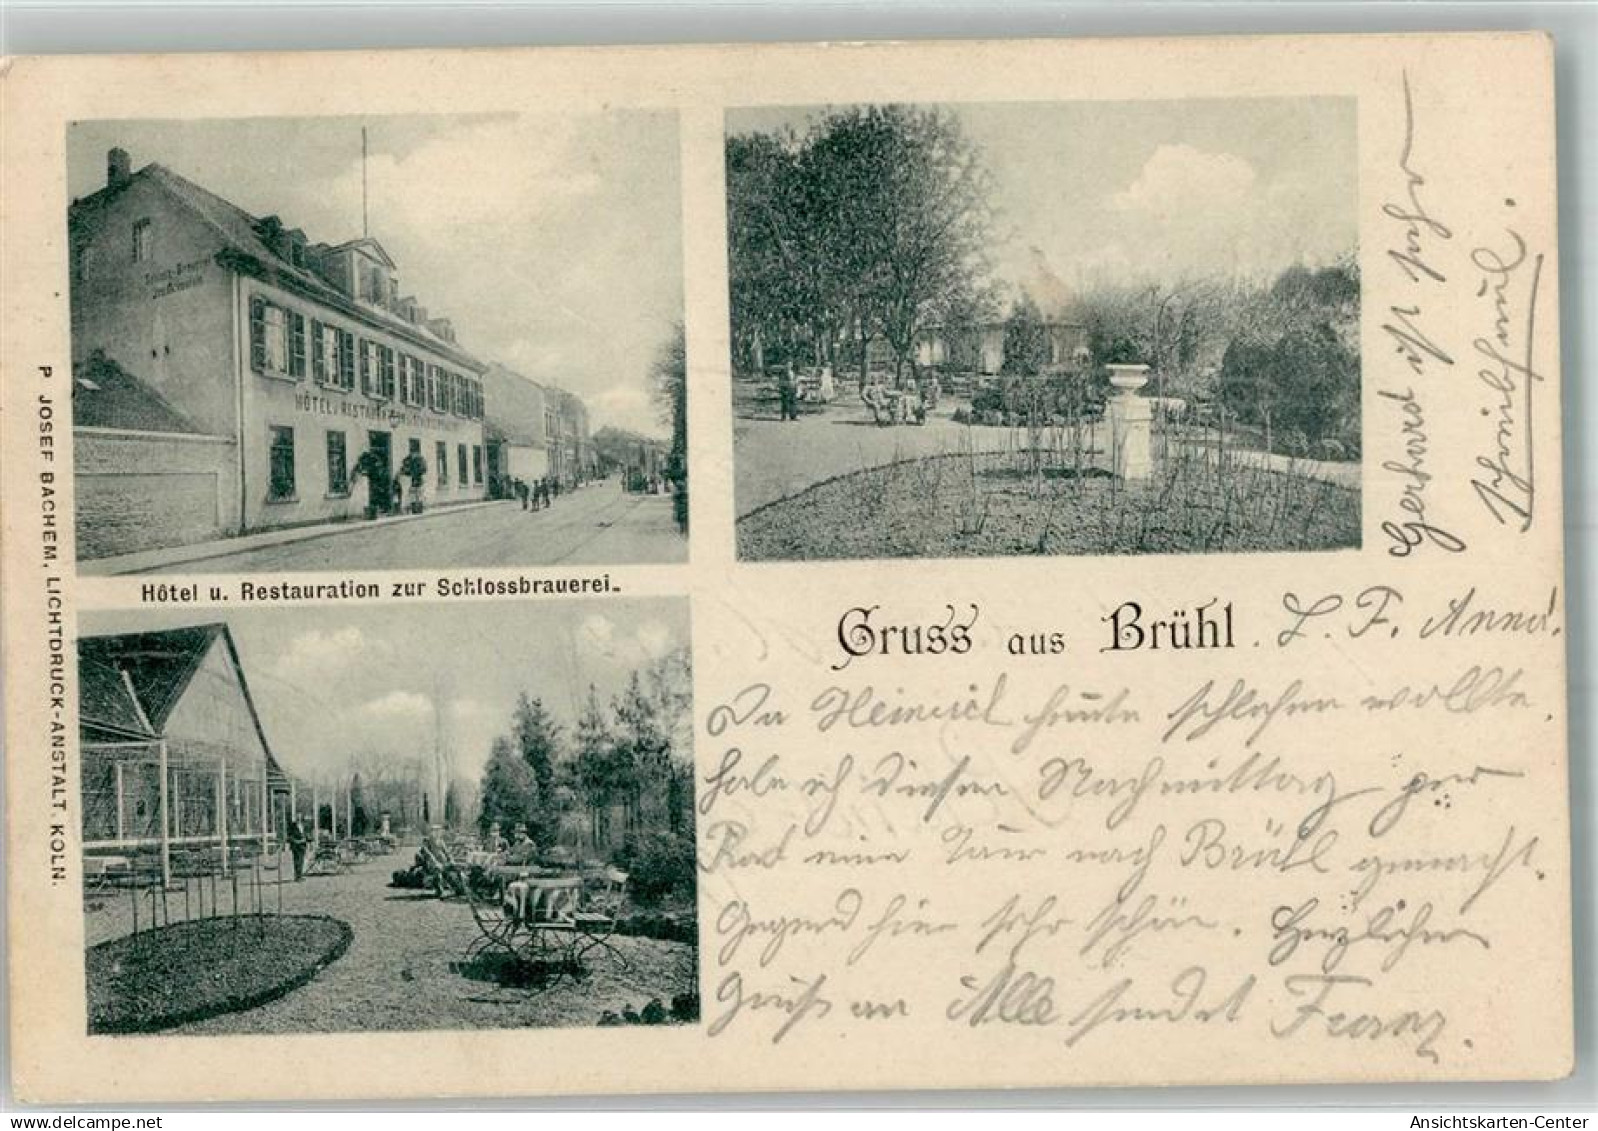 HÔTEL u. RESTAUR
Hôtel u. Restauration zur Schlossbrauerei.
P. JOSEF BACHEM, LICHTDRUCK-ANSTALT. KÖLN.
Gruss aus Brühl. L. F. Anna!
Da Heinrich heute schlafen wollte,
habe ich diesen Nachmittag per
Rad eine Tour nach Brühl gemacht.
Gegend hier sehr schön. Herzlichen
Gruß an Alle sendet Franz.
Gerhard ist sehr
Ansichtskarten-Center